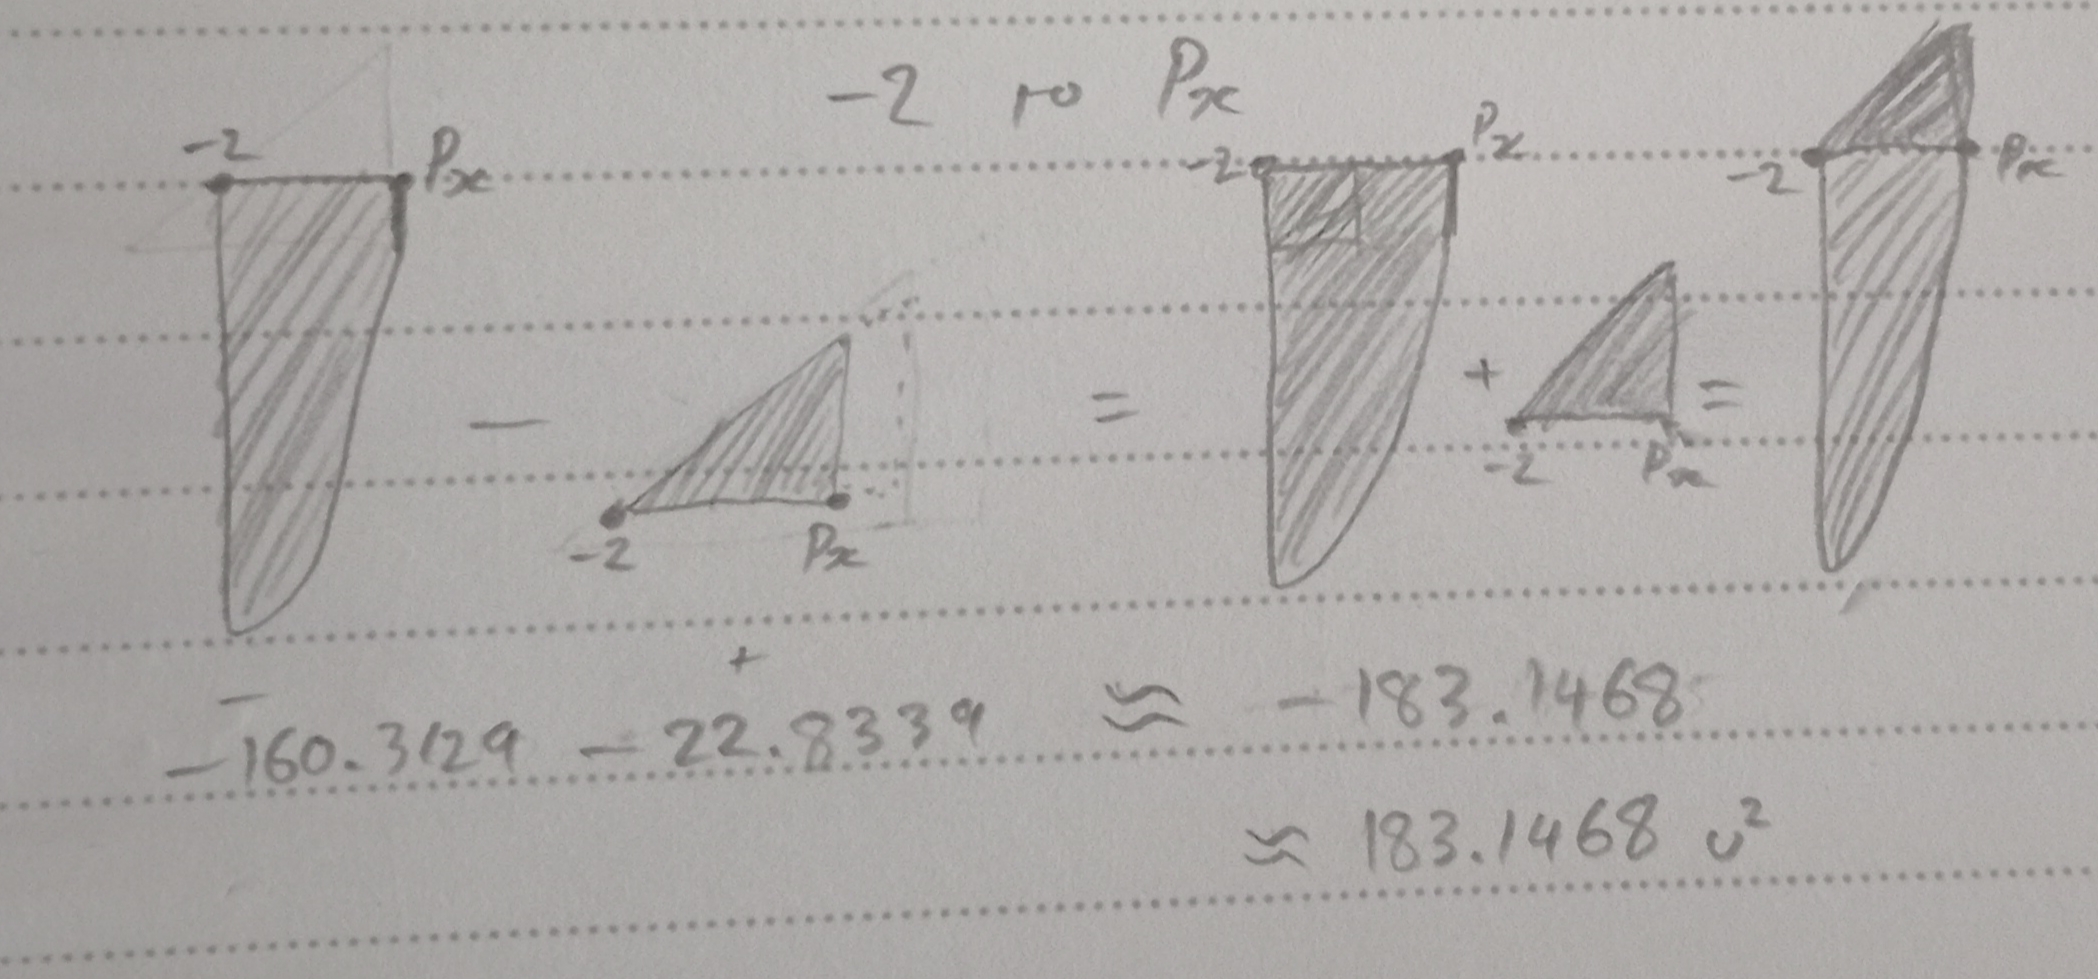 -2 to Px
-2 Px -2 Px -2 Px
- = + =
-2 Px -2 Px
- +
-160.3129 - 22.8339 ≈ -183.1468
≈ 183.1468 u²